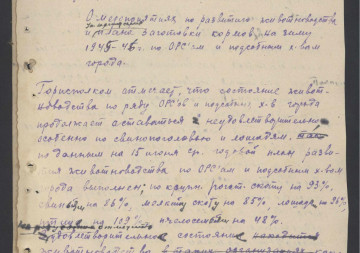 О мероприятиях по развитию животноводства
и плане заготовки кормов на зиму
194 -4 г. по ОРС'ам и подсобным х-вам
города.
Горисполком отмечает, что состояние живот-
новодства по ряду ОРС'ов и подсобных х-в города
продолжает оставаться неудовлетворительно
особенно по свинопоголовью и лошадям.
по данным на 15 июня с. годовой план разви-
тия животноводства по ОРС'ам и подсобным х-вам
города выполнен: по крупн. рогат. скоту на 93%,
свиньям на 56%, молкому скоту на 85%, лошадям на 26%
птице на 109% пчелосемьям на 48%.
удовлетворительное состояние находится
животноводства в таких организациях